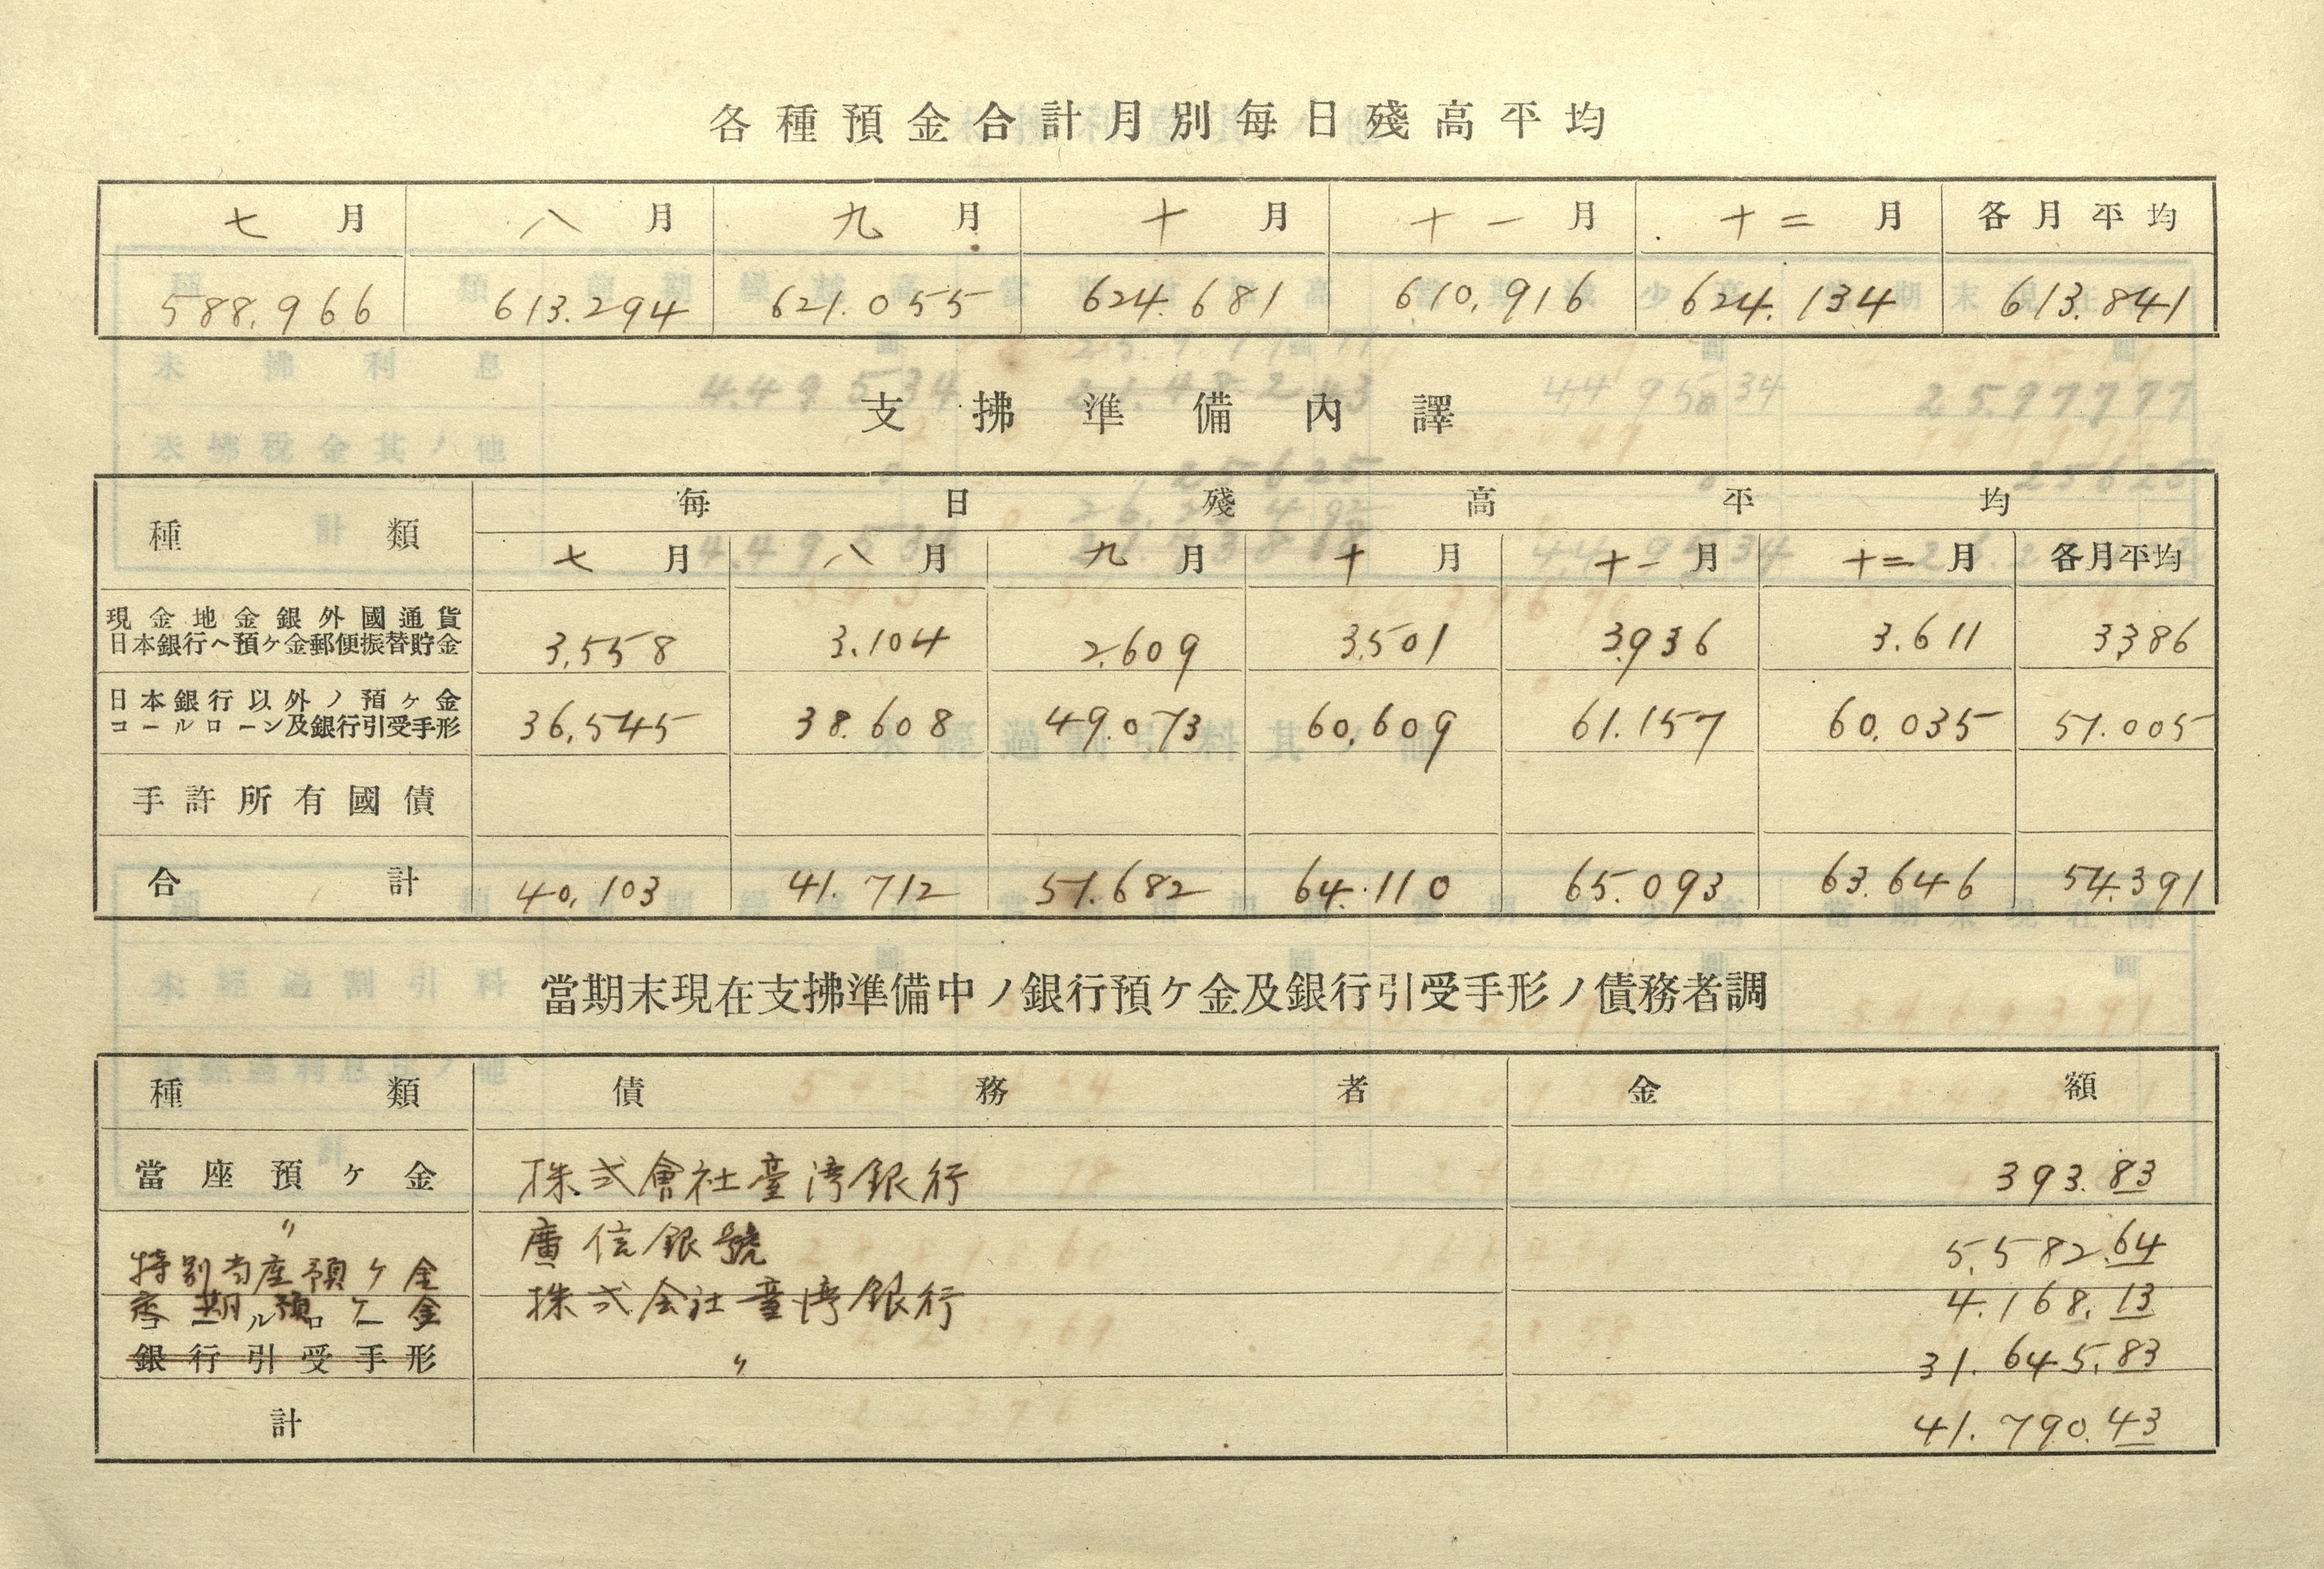 各種預金合計月別每日殘高平均
七月 八月 九月 十月 十一月 十二月 各月平均
588,966 613.294 621.055 624.681 610,916 624.134 613.841
支拂準備內譯
種類 每日殘高平均
七月 八月 九月 十月 十一月 十二月 各月平均
現金地金銀外國通貨
日本銀行ヘ預ケ金郵便振替貯金 3,558 3.104 2,609 3,501 3,936 3.611 3,386
日本銀行以外ノ預ケ金
コールローン及銀行引受手形 36,545 38.608 49.073 60,609 61.157 60.035 51.005
手許所有國債
合計 40,103 41.712 51.682 64.110 65.093 63.646 54.391
當期末現在支拂準備中ノ銀行預ケ金及銀行引受手形ノ債務者調
種類 債務者 金額
當座預ケ金 株式會社臺湾銀行 393.83
〃 廣信銀號 5,582.64
特別当座預ケ金 株式会社臺湾銀行 4.168.13
期預ケ金 〃 31.645.83
コールローン
銀行引受手形
計 41.790.43